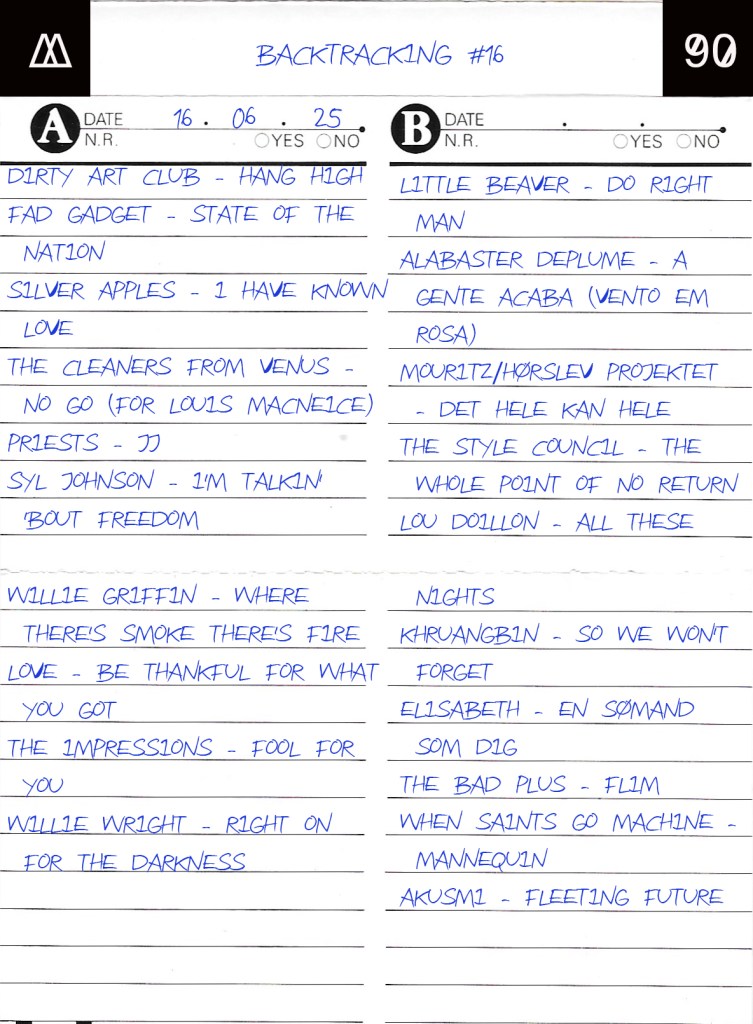 BACKTRACKING #16
90
A DATE 16 . 06 . 25
N.R. YES NO
DIRTY ART CLUB - HANG HIGH
FAD GADGET - STATE OF THE
NATION
SILVER APPLES - I HAVE KNOWN
LOVE
THE CLEANERS FROM VENUS -
NO GO (FOR LOUIS MACNEICE)
PRIESTS - JJ
SYL JOHNSON - I'M TALKIN'
'BOUT FREEDOM
WILLIE GRIFFIN - WHERE
THERE'S SMOKE THERE'S FIRE
LOVE - BE THANKFUL FOR WHAT
YOU GOT
THE IMPRESSIONS - FOOL FOR
YOU
WILLIE WRIGHT - RIGHT ON
FOR THE DARKNESS
B DATE . .
N.R. YES NO
LITTLE BEAVER - DO RIGHT
MAN
ALABASTER DEPLUME - A
GENTE ACABA (VENTO EM
ROSA)
MOURITZ/HØRSLEV PROJEKTET
- DET HELE KAN HELE
THE STYLE COUNCIL - THE
WHOLE POINT OF NO RETURN
LOU DOILLON - ALL THESE
NIGHTS
KHRUANGBIN - SO WE WON'T
FORGET
ELISABETH - EN SØMAND
SOM DIG
THE BAD PLUS - FLIM
WHEN SAINTS GO MACHINE -
MANNEQUIN
AKUSMI - FLEETING FUTURE